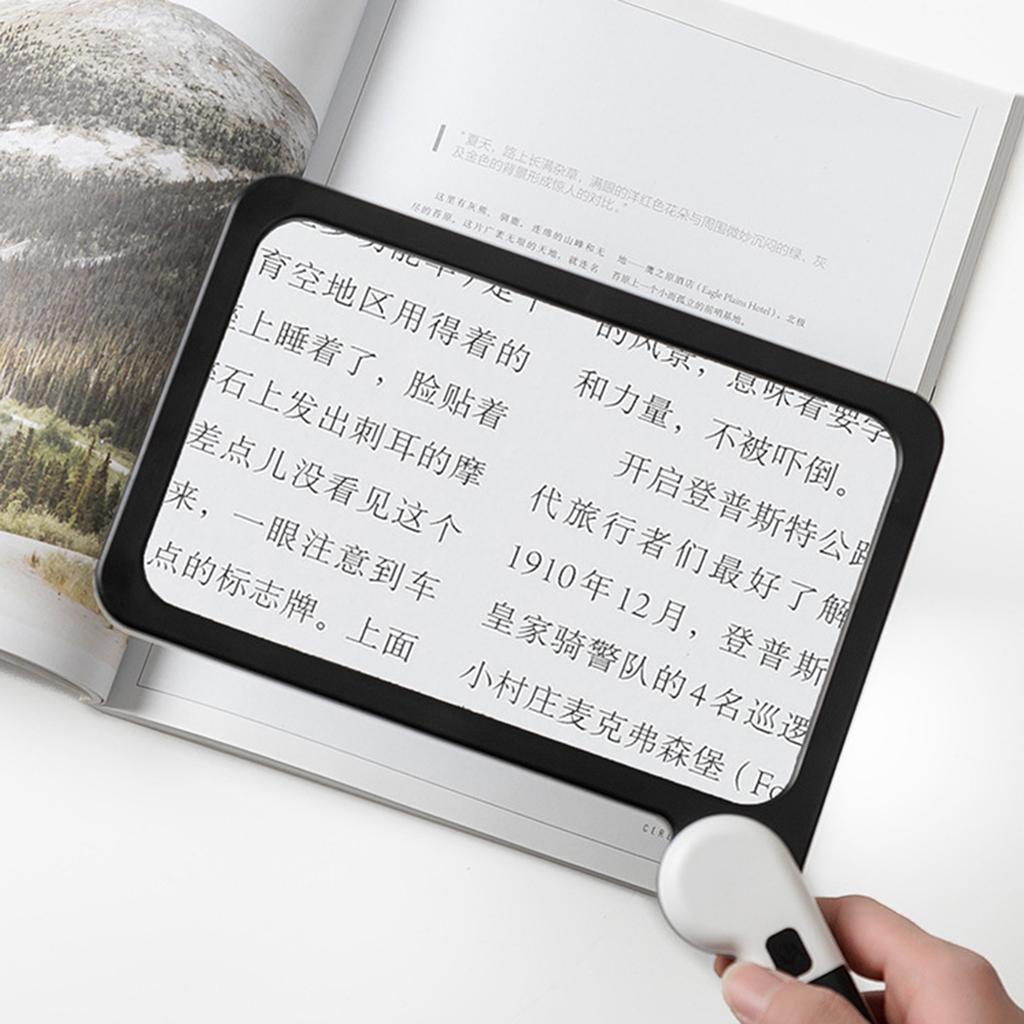 “夏天，路上长满杂草，满眼的洋红色花朵与周围微妙沉闷的绿、灰
及金色的背景形成惊人的对比。”
这里有灰熊、驯鹿、连绵的山峰和无
尽的苔原。这片广袤无垠的天地，就连名
地——鹰之原酒店（Eagle Plains Hotel），北极
苔原上一个小而孤立的前哨基地。
育空地区用得着的
上睡着了，脸贴着
石上发出刺耳的摩
差点儿没看见这个
来，一眼注意到车
点的标志牌。上面
的风景，意味着要学
和力量，不被吓倒。
开启登普斯特公路
代旅行者们最好了解
1910年12月，登普斯
皇家骑警队的4名巡逻
小村庄麦克弗森堡（Fo